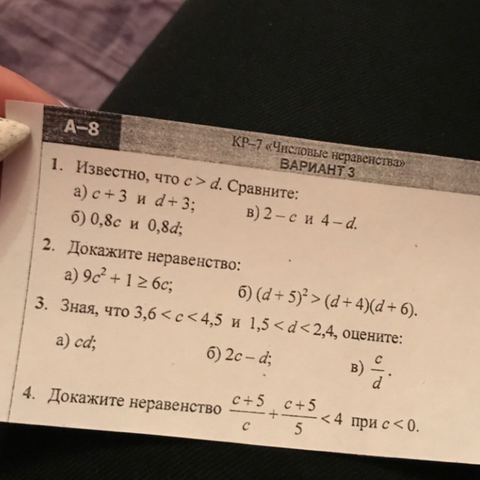 А–8
КР–7 «Числовые неравенства»
ВАРИАНТ 3
1. Известно, что c > d. Сравните:
а) c + 3 и d + 3; в) 2 – c и 4 – d.
б) 0,8c и 0,8d;
2. Докажите неравенство:
а) 9c² + 1 ≥ 6c; б) (d + 5)² > (d + 4)(d + 6).
3. Зная, что 3,6 < c < 4,5 и 1,5 < d < 2,4, оцените:
а) cd; б) 2c – d; в) c/d.
4. Докажите неравенство (c + 5)/c + (c + 5)/5 < 4 при c < 0.